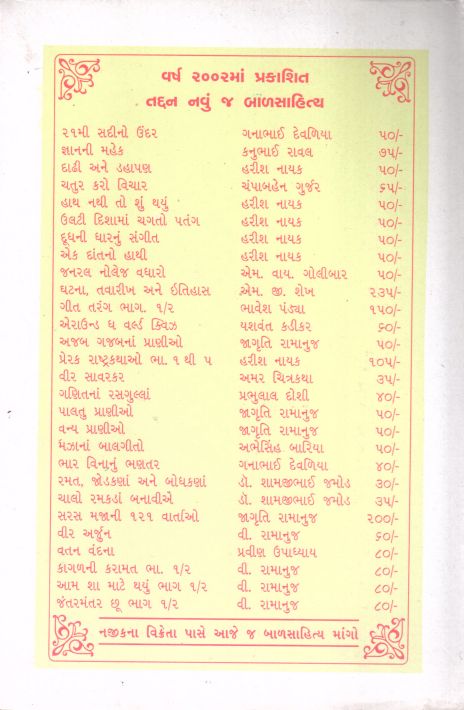 વર્ષ ૨૦૦૨માં પ્રકાશિત
તદ્દન નવું જ બાળસાહિત્ય
૨૧મી સદીનો ઉંદર ગનાભાઈ દેવળિયા ૫૦/-
જ્ઞાનની મહેક કનુભાઈ રાવલ ૭૫/-
દાઢી અને ડહાપણ હરીશ નાયક ૫૦/-
ચતુર કરો વિચાર ચંપાબહેન ગુર્જર ૬૫/-
હાથ નથી તો શું થયું હરીશ નાયક ૫૦/-
ઉલટી દિશામાં ચગતો પતંગ હરીશ નાયક ૫૦/-
દૂધની ધારનું સંગીત હરીશ નાયક ૫૦/-
એક દાંતનો હાથી હરીશ નાયક ૫૦/-
જનરલ નોલેજ વધારો એમ. વાય. ગોલીબાર ૫૦/-
ઘટના, તવારીખ અને ઇતિહાસ એમ. જી. શેખ ૨૩૫/-
ગીત તરંગ ભાગ. ૧/૨ ભાવેશ પંડ્યા ૧૫૦/-
એરાઉન્ડ ધ વર્લ્ડ ક્વિઝ યશવંત કડીકર ૬૦/-
અજબ ગજબનાં પ્રાણીઓ જાગૃતિ રામાનુજ ૫૦/-
પ્રેરક રાષ્ટ્રકથાઓ ભા. ૧ થી ૫ હરીશ નાયક ૧૦૫/-
વીર સાવરકર અમર ચિત્રકથા ૩૫/-
ગણિતનાં રસગુલ્લાં પ્રભુલાલ દોશી ૪૦/-
પાલતુ પ્રાણીઓ જાગૃતિ રામાનુજ ૫૦/-
વન્ય પ્રાણીઓ જાગૃતિ રામાનુજ ૫૦/-
મઝાનાં બાલગીતો અભેસિંહ બારિયા ૫૦/-
ભાર વિનાનું ભણતર ગનાભાઈ દેવળિયા ૪૦/-
રમત, જોડકણાં અને બોધકણાં ડૉ. શામજીભાઈ જમોડ ૩૦/-
ચાલો રમકડાં બનાવીએ ડૉ. શામજીભાઈ જમોડ ૩૫/-
સરસ મજાની ૧૨૧ વાર્તાઓ જાગૃતિ રામાનુજ ૨૦૦/-
વીર અર્જુન વી. રામાનુજ ૬૦/-
વતન વંદના પ્રવીણ ઉપાધ્યાય ૮૦/-
કાગળની કરામત ભા. ૧/૨ વી. રામાનુજ ૮૦/-
આમ શા માટે થયું ભાગ ૧/૨ વી. રામાનુજ ૮૦/-
જંતરમંતર છૂ ભાગ ૧/૨ વી. રામાનુજ ૮૦/-
નજીકના વિક્રેતા પાસે આજે જ બાળસાહિત્ય માંગો